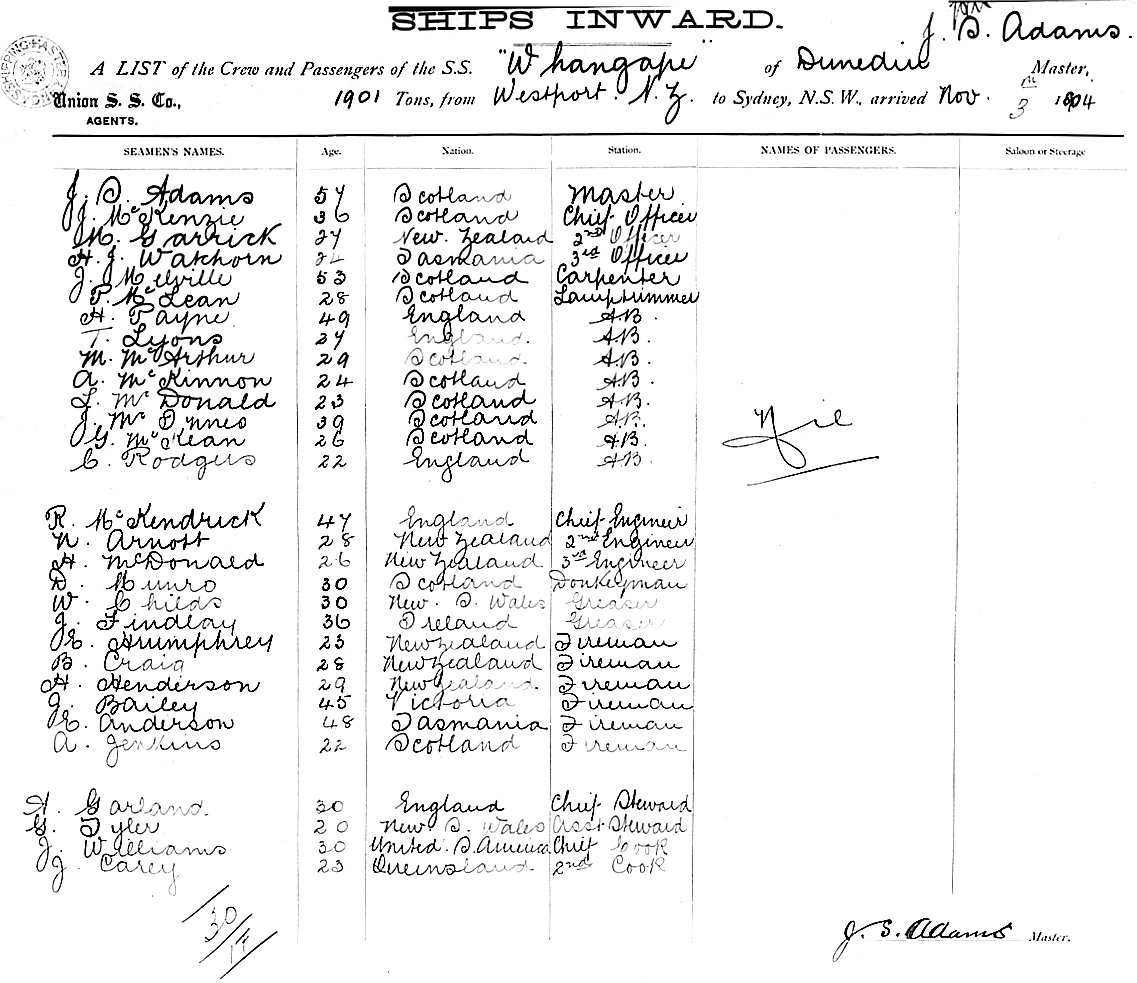 SHIPS INWARD.
J. S. Adams.
A LIST of the Crew and Passengers of the S.S. "Whangape" of Dunedin Master,
Union S. S. Co., 1901 Tons, from Westport. N.Z. to Sydney, N.S.W., arrived Nov. 3 1904
AGENTS.
SEAMEN'S NAMES. Age. Nation. Station. NAMES OF PASSENGERS. Saloon or Steerage
J. S. Adams 57 Scotland Master
J. McKenzie 36 Scotland Chief Officer
M. Garrick 27 New Zealand 2nd Officer
H. J. Watchorn 24 Tasmania 3rd Officer
J. Melville 53 Scotland Carpenter
P. McLean 28 Scotland Lamptrimmer
H. Payne 49 England A.B.
T. Lyons 37 England. A.B.
M. McArthur 29 Scotland. A.B.
A. McKinnon 24 Scotland A.B.
L. McDonald 23 Scotland A.B.
J. McInnes 39 Scotland A.B.
G. McKean 26 Scotland A.B.
C. Rodgers 22 England A.B.
Nil
R. McKendrick 47 England Chief Engineer
N. Arnott 28 New Zealand 2nd Engineer
H. McDonald 26 New Zealand 3rd Engineer
D. Munro 30 Scotland Donkeyman
W. Childs 30 New. S. Wales Greaser
J. Findlay 36 Ireland Greaser
E. Hrumphrey 23 New Zealand Fireman
B. Craig 28 New Zealand Fireman
H. Henderson 29 New Zealand. Fireman
J. Bailey 45 Victoria Fireman
E. Anderson 48 Tasmania Fireman
A. Jenkins 22 Scotland Fireman
A. Garland. 30 England Chief Steward
G. Tyler 20 New S. Wales Asst Steward
J. Williams 30 United. S. America Chief Cook
J. Carey 23 Queensland 2nd Cook
30
J. S. Adams Master.